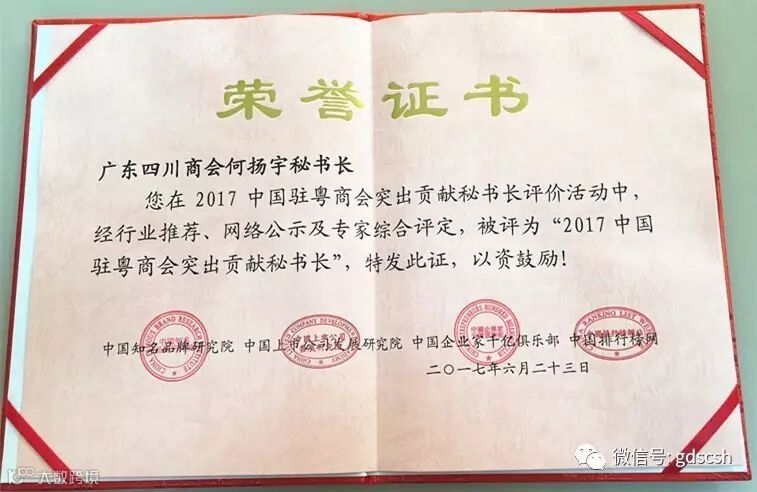 荣誉证书
广东四川商会何扬宇秘书长
您在 2017 中国驻粤商会突出贡献秘书长评价活动中，
经行业推荐、网络公示及专家综合评定，被评为“2017 中国
驻粤商会突出贡献秘书长”，特发此证，以资鼓励！
中国知名品牌研究院 中国上市公司发展研究院 中国企业家千亿俱乐部 中国排行榜网
二〇一七年六月二十三日
微信号: gdscsh
大数跨境